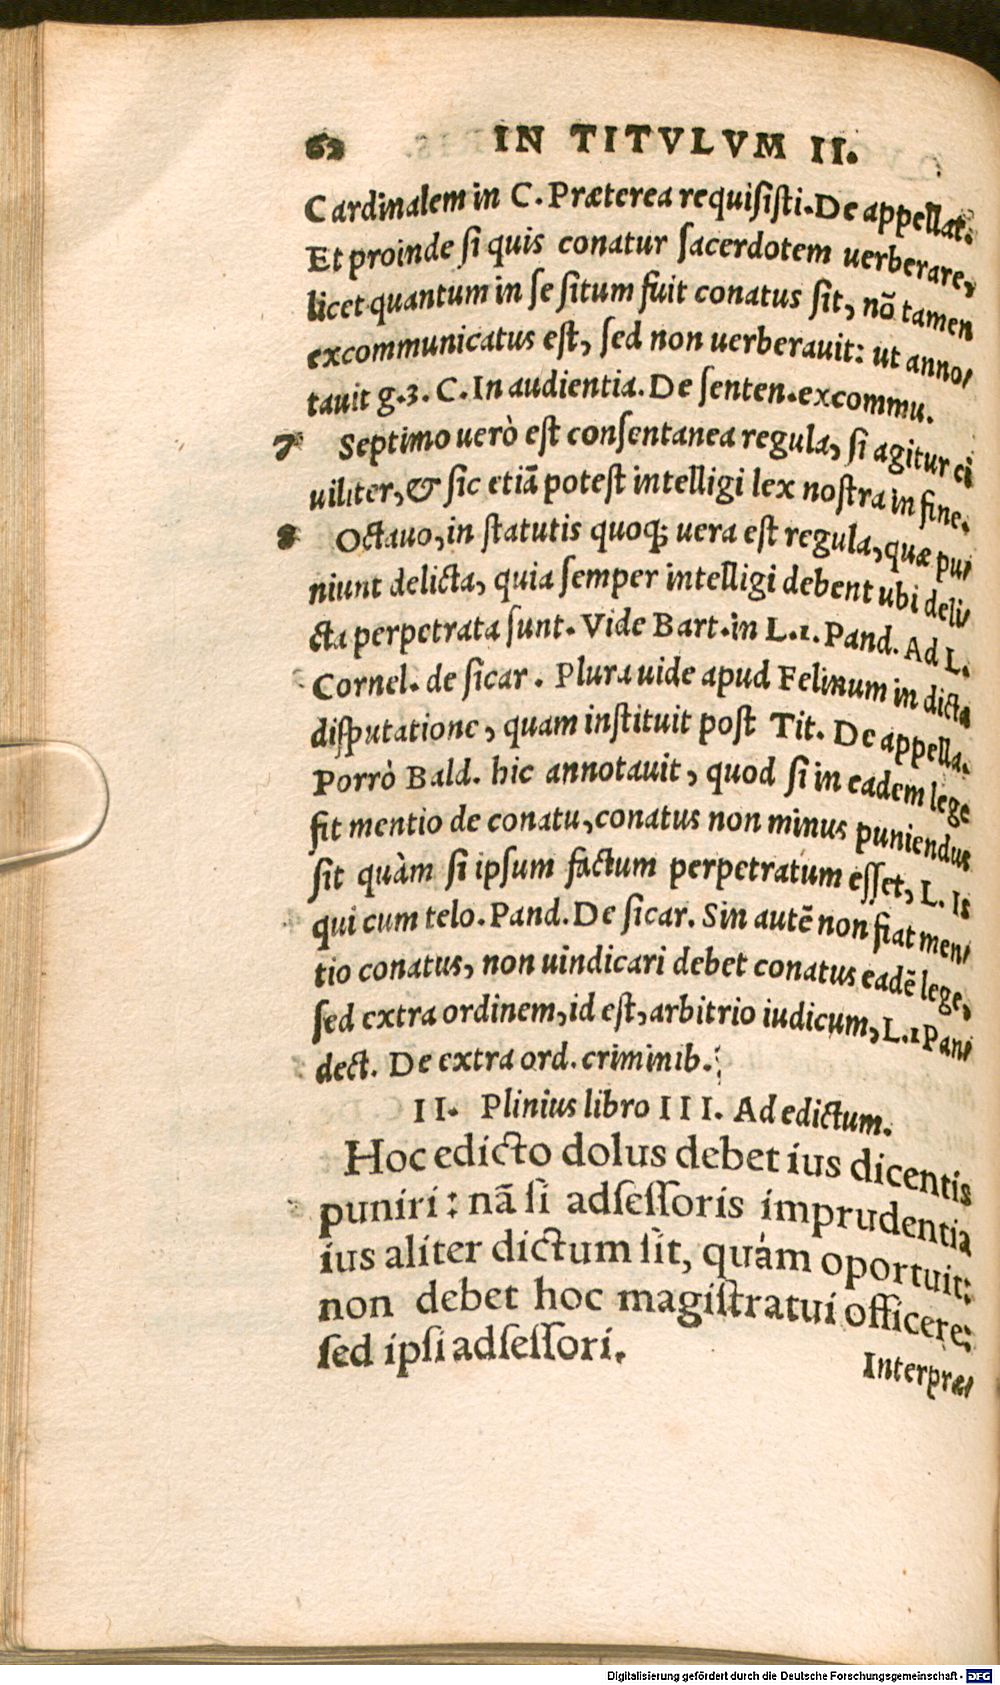 62 IN TITVLVM II.
Cardinalem in C. Præterea requisisti. De appellat.
Et proinde si quis conatur sacerdotem uerberare,
licet quantum in se situm fuit conatus sit, nõ tamen
excommunicatus est, sed non uerberauit: ut anno/
tauit g.3. C. In audientia. De senten. excommu.
7 Septimo uerò est consentanea regula, si agitur ci
uiliter, & sic etiã potest intelligi lex nostra in fine.
8 Octauo, in statutis quoq; uera est regula, quæ pu/
niunt delicta, quia semper intelligi debent ubi deli/
cta perpetrata sunt. Vide Bart. in L.1. Pand. Ad L.
Cornel. de sicar. Plura uide apud Felinum in dicta
disputatione, quam instituit post Tit. De appella.
Porrò Bald. hic annotauit, quod si in eadem lege
fit mentio de conatu, conatus non minus puniendus
sit quàm si ipsum factum perpetratum esset, L. Is
qui cum telo. Pand. De sicar. Sin autẽ non fiat men/
tio conatus, non uindicari debet conatus eadẽ lege,
sed extra ordinem, id est, arbitrio iudicum, L.1 Pan/
dect. De extra ord. criminib.
II. Plinius libro III. Ad edictum.
Hoc edicto dolus debet ius dicentis
puniri: nã si adsessoris imprudentia
ius aliter dictum sit, quàm oportuit:
non debet hoc magistratui officere:
sed ipsi adsessori.
Interpræ/
Digitalisierung gefördert durch die Deutsche Forschungsgemeinschaft - DFG